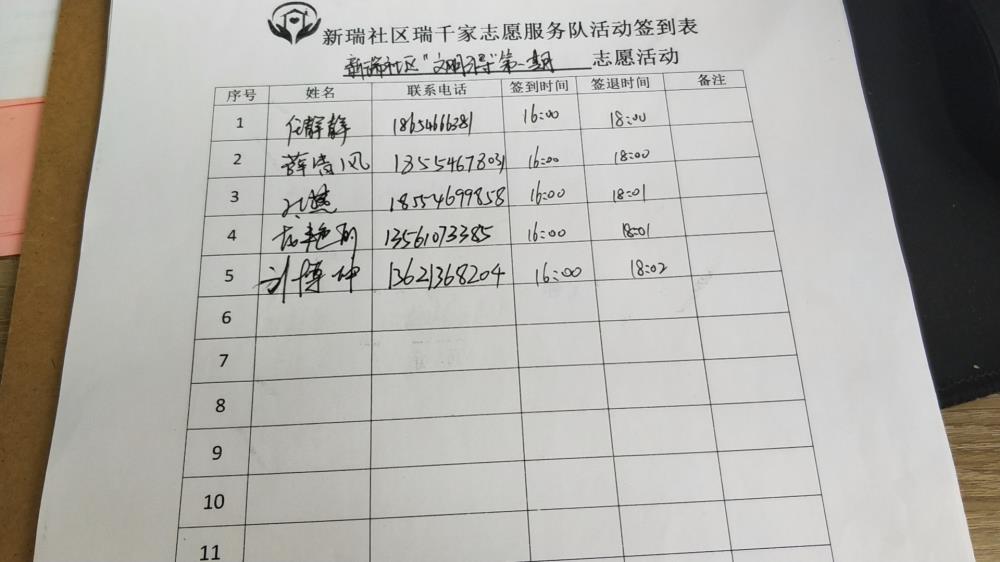 新瑞社区瑞千家志愿服务队活动签到表
新瑞社区"文明行"第一期 志愿活动
序号 姓名 联系电话 签到时间 签退时间 备注
1 任静静 18654666381 16:00 18:00
2 薛清风 18554678031 16:00 18:00
3 18554699858 16:00 18:01
4 13561073385 16:00 18:01
5 刘博坤 13621368204 16:00 18:02
6
7
8
9
10
11